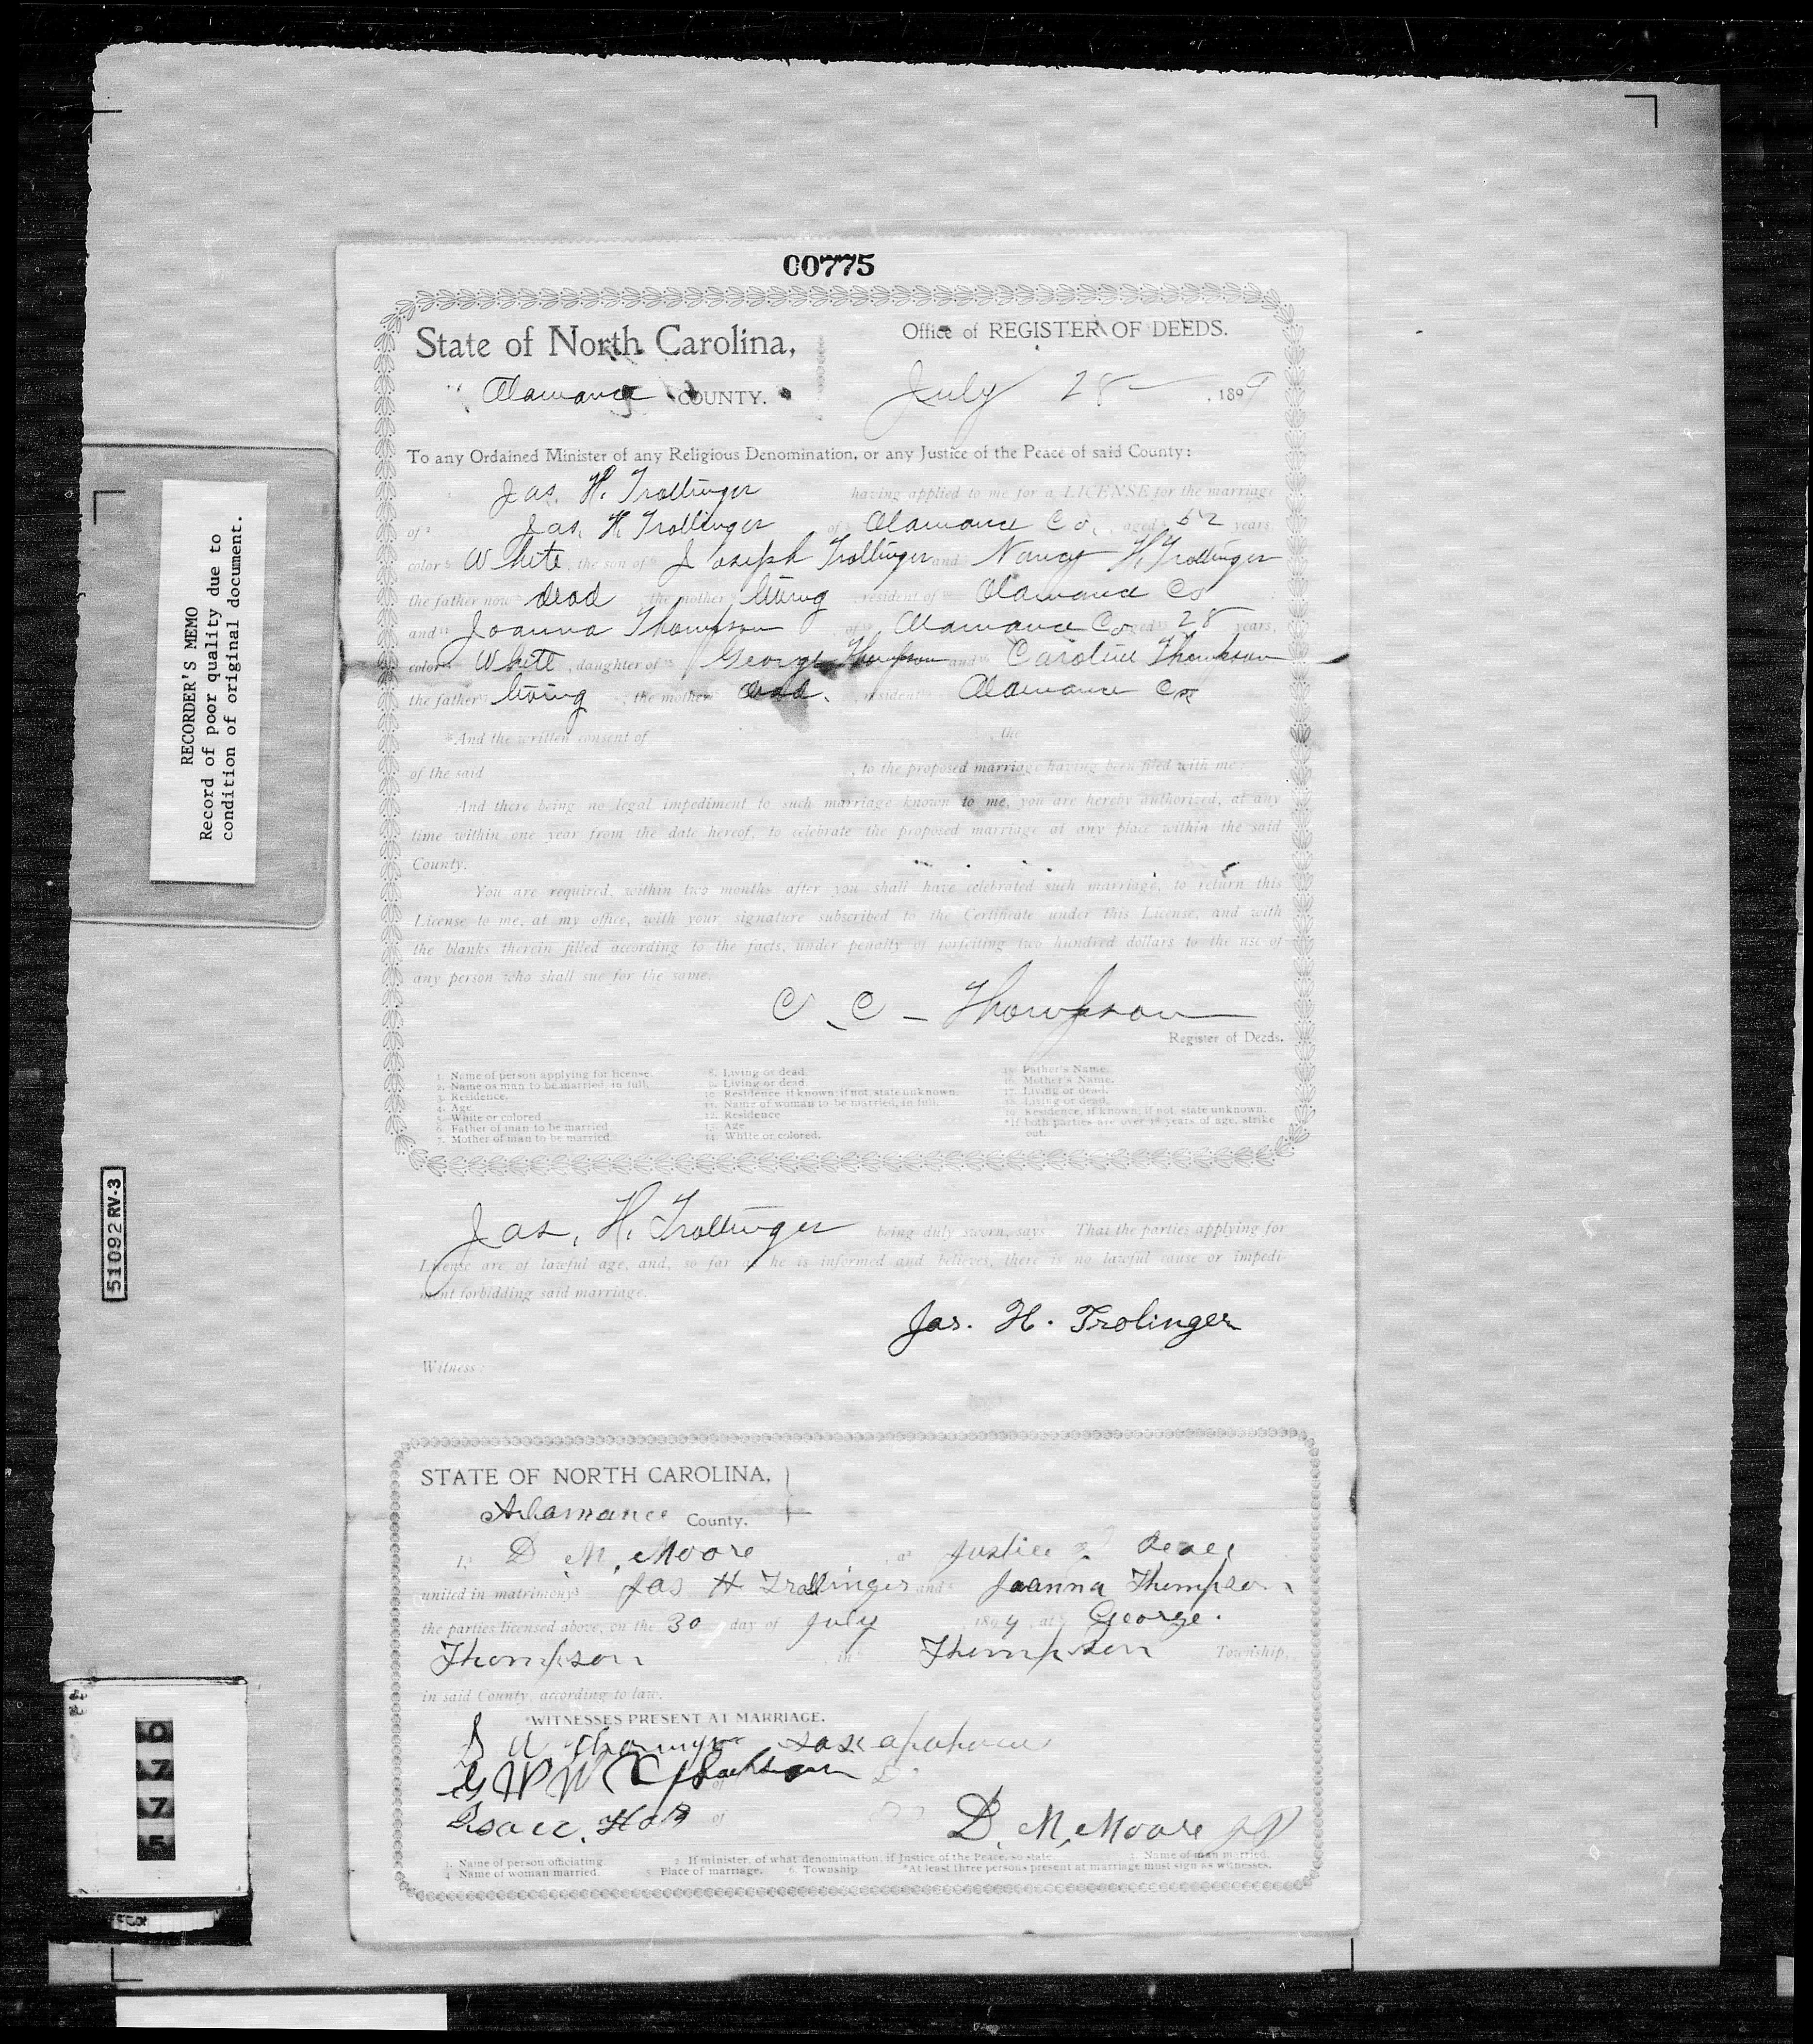 00775
State of North Carolina,
Office of REGISTER OF DEEDS.
Alamance COUNTY.
July 28 , 1899
To any Ordained Minister of any Religious Denomination, or any Justice of the Peace of said County:
Jas. H. Trollinger having applied to me for a LICENSE for the marriage
of 2 Jas. H. Trollinger of 3 Alamance Co, aged 4 52 years,
color 5 White, the son of 6 Joseph Trollinger and Nancy H. Trollinger
the father now dead, the mother living, resident of 10 Alamance Co
and 11 Joanna Thompson of 12 Alamance Co aged 13 28 years,
color 14 White, daughter of 15 George Thompson and 16 Caroline Thompson
the father 17 living, the mother dead, resident Alamance Co
*And the written consent of , the
of the said , to the proposed marriage having been filed with me:
And there being no legal impediment to such marriage known to me, you are hereby authorized, at any
time within one year from the date hereof, to celebrate the proposed marriage at any place within the said
County.
You are required, within two months after you shall have celebrated such marriage, to return this
License to me, at my office, with your signature subscribed to the Certificate under this License, and with
the blanks therein filled according to the facts, under penalty of forfeiting two hundred dollars to the use of
any person who shall sue for the same.
C. C. Thompson
Register of Deeds.
1. Name of person applying for license.
2. Name os man to be married, in full.
3. Residence.
4. Age
5. White or colored
6. Father of man to be married
7. Mother of man to be married.
8. Living or dead.
9. Living or dead.
10. Residence if known; if not, state unknown.
11. Name of woman to be married, in full.
12. Residence
13. Age
14. White or colored.
15. Father's Name.
16. Mother's Name.
17. Living or dead.
18. Living or dead.
19. Residence, if known; if not, state unknown.
*If both parties are over 18 years of age, strike
out.
Jas. H. Trollinger being duly sworn, says: That the parties applying for
License are of lawful age, and, so far as he is informed and believes, there is no lawful cause or impedi-
ment forbidding said marriage.
Jas. H. Trolinger
Witness:
STATE OF NORTH CAROLINA,
Alamance County.
I, D. M. Moore, a Justice of Peace
united in matrimony 3 Jas H Trollinger and Joanna Thompson
the parties licensed above, on the 30 day of July 1899, at George.
Thompson in Thompson Township,
in said County, according to law.
*WITNESSES PRESENT AT MARRIAGE.
of
Isaac of
D. M. Moore JP
1. Name of person officiating. 2. If minister, of what denomination; if Justice of the Peace, so state. 3. Name of man married.
4. Name of woman married. 5. Place of marriage. 6. Township *At least three persons present at marriage must sign as witnesses.
RECORDER'S MEMO
Record of poor quality due to
condition of original document.
51092 RV-3
0
7
7
5